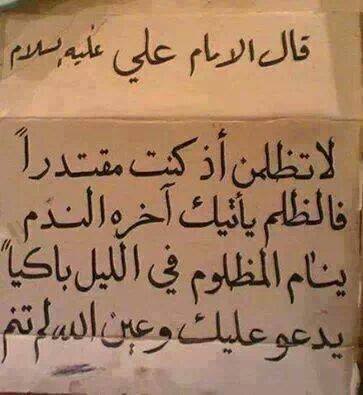 قال الامام علي عليه السلام
لا تظلمن أذ كنت مقتدراً
فالظلم يأتيك آخره الندم
ينام المظلوم في الليل باكياً
يدعو عليك وعين الله لم تنم